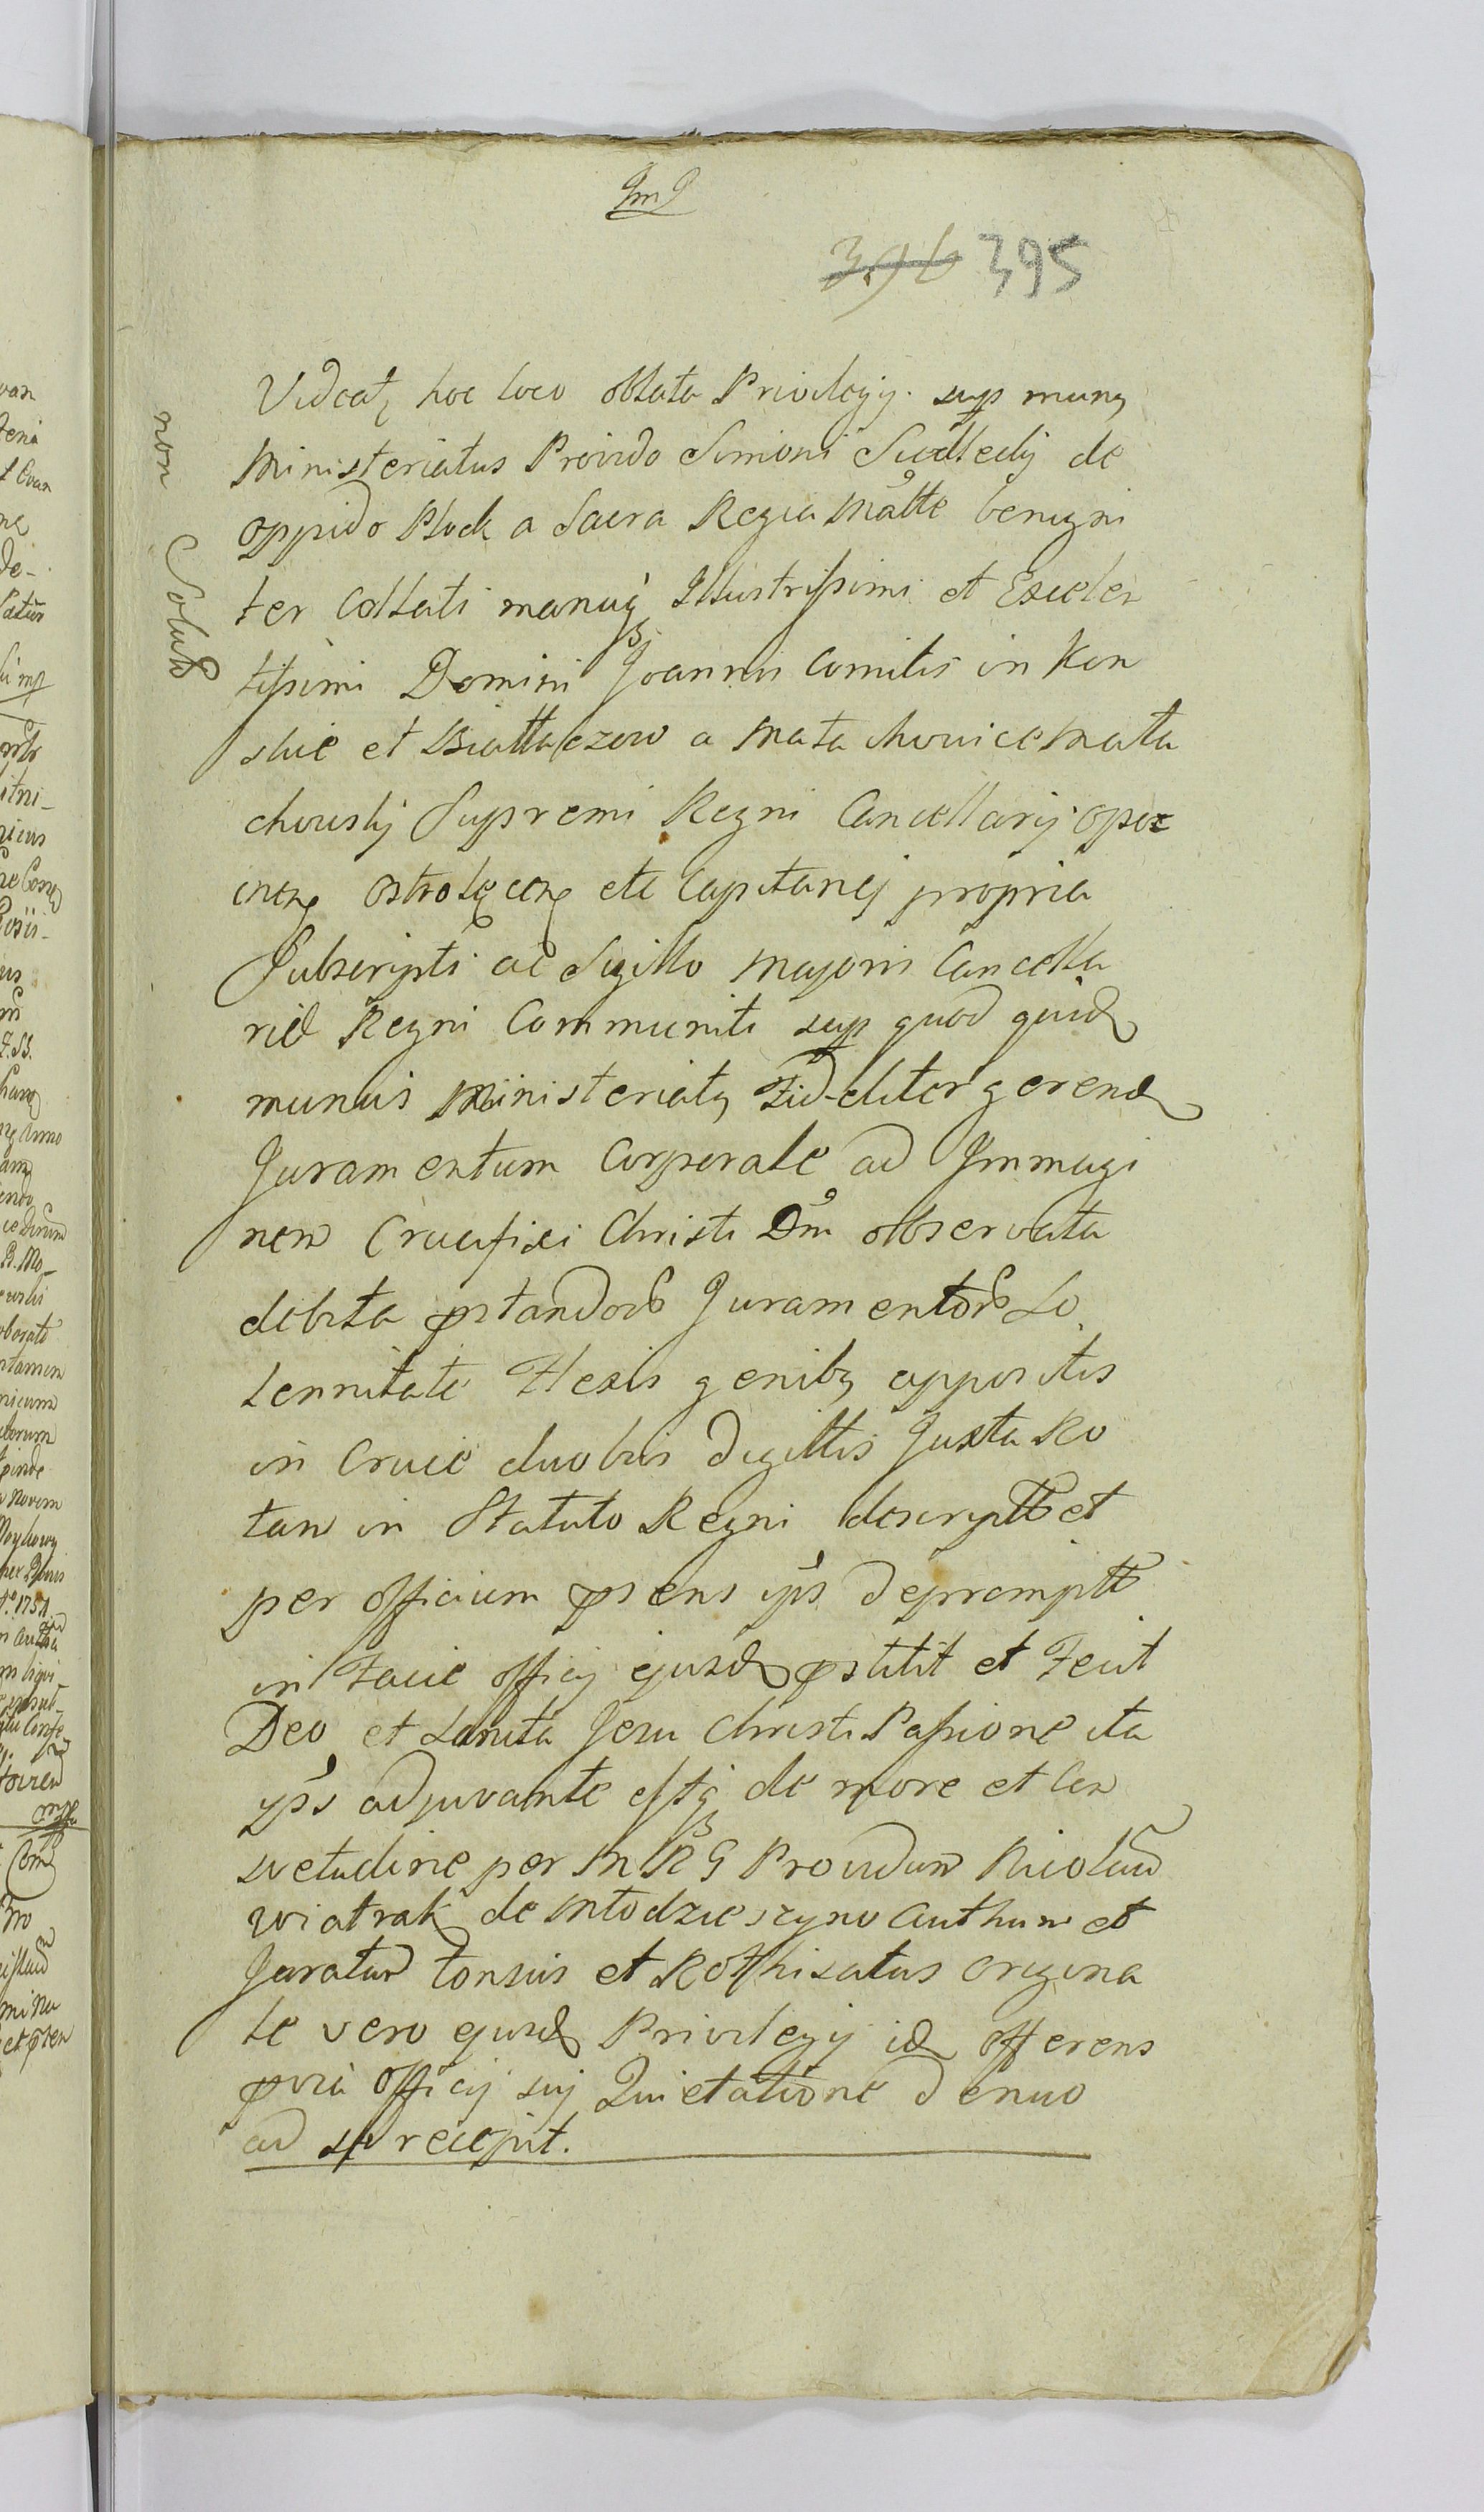 395
Videatz hoc loco oblata Privilegij sup munz
Ministeriatus Provido Simoni Siedlecij de
oppido Plock a Sacra Regia Matte benigni
ter collati manuq Illustrissimi et Excelen
tissimi Domini Joannis Comitis in Kon
skie et Białłaczow a Mała chowice Mała
chowskij Supremi Regni Cancellarij opoc
cnenz ostrolęcenz etc Capitanej propria
Subscripti ac Sigillo majoris Cancella
riæ Regni Communiti sup quod quid
munus Ministeriatz Fideliter gerend
Juramentum Corporale ad Immagi
nem Crucifixi Christi Dni observata
debita pstandor Juramentor So
lennitate Flexis genibz appositis
in Cruce duobus digittis Juxta Ro
tam in Statuto Regni descriptt et
per officium psens ipsi deprompitt
in Facie officij ejusd pstitit et Fecit
Deo et Sancta Jesu Christi Passione ita
ipsi adjuvante estq de more et Con
svetudine per M R G Providum Nicolaum
wiatrak de Młodzieszyno Authum et
Juratum tonsus et Rothisatus origina
le vero ejusd Privilegij id offerens
pvia officij sui Quietatione denuo
ad se recepit.
non Solut